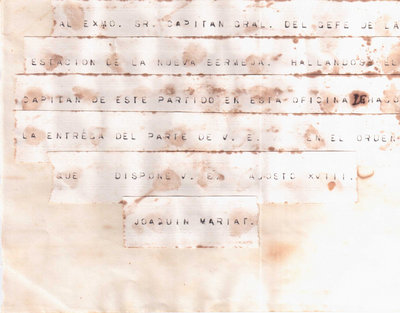 AL EXMO. SR. CAPITAN GRAL. DEL GEFE DE LA
ESTACION DE LA NUEVA BERMEJA. HALLANDOSE EL
CAPITAN DE ESTE PARTIDO EN ESTA OFICINA LE HAGO
LA ENTREGA DEL PARTE DE V. E. EN EL ORDEN
QUE DISPONE V. E. AGOSTO XVIII.
JOAQUIN MARIAT.